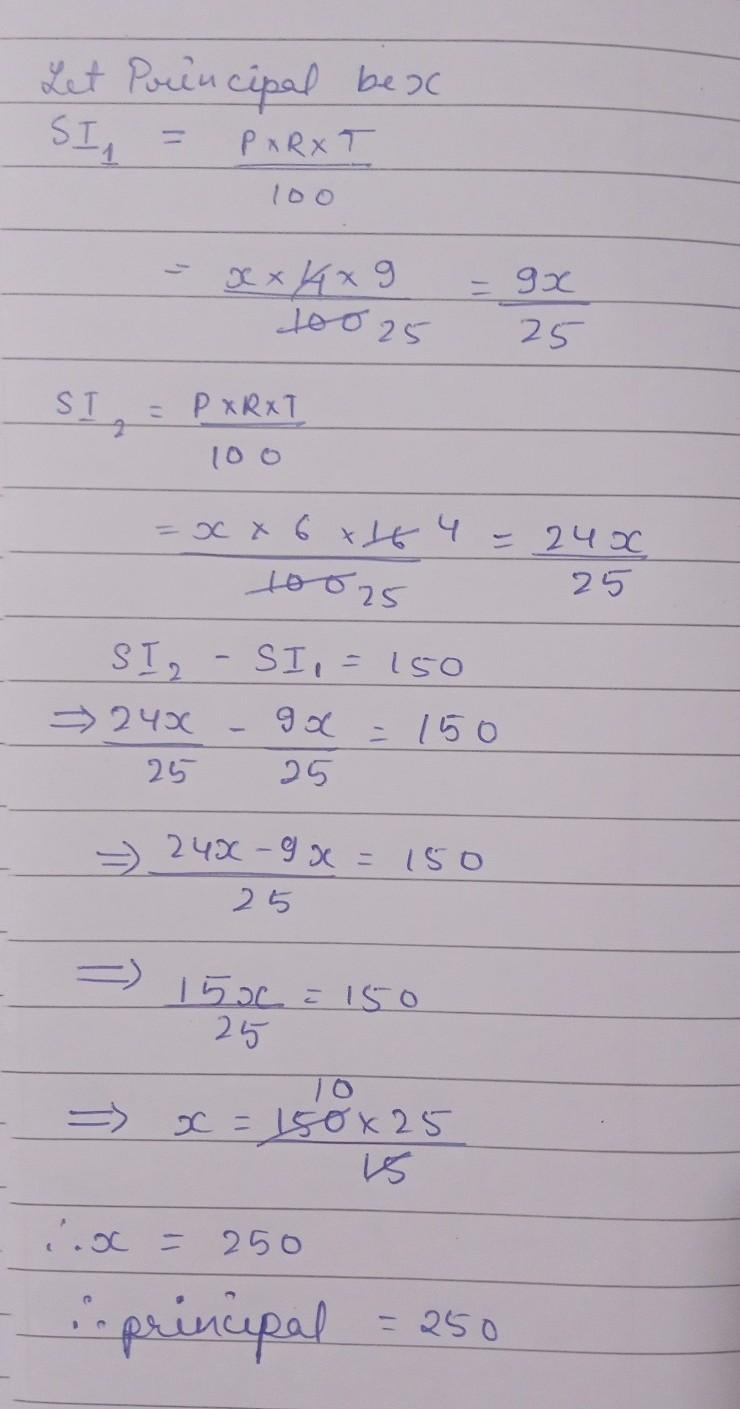 Let Principal be x
SI₁ = P×R×T
100
= x × 4 × 9 = 9x
100 25 25
SI₂ = P×R×T
100
= x × 6 × 16 4 = 24x
100 25 25
SI₂ - SI₁ = 150
⇒ 24x - 9x = 150
25 25
⇒ 24x - 9x = 150
25
⇒ 15x = 150
25
10
⇒ x = 150 × 25
15
∴ x = 250
∴ principal = 250